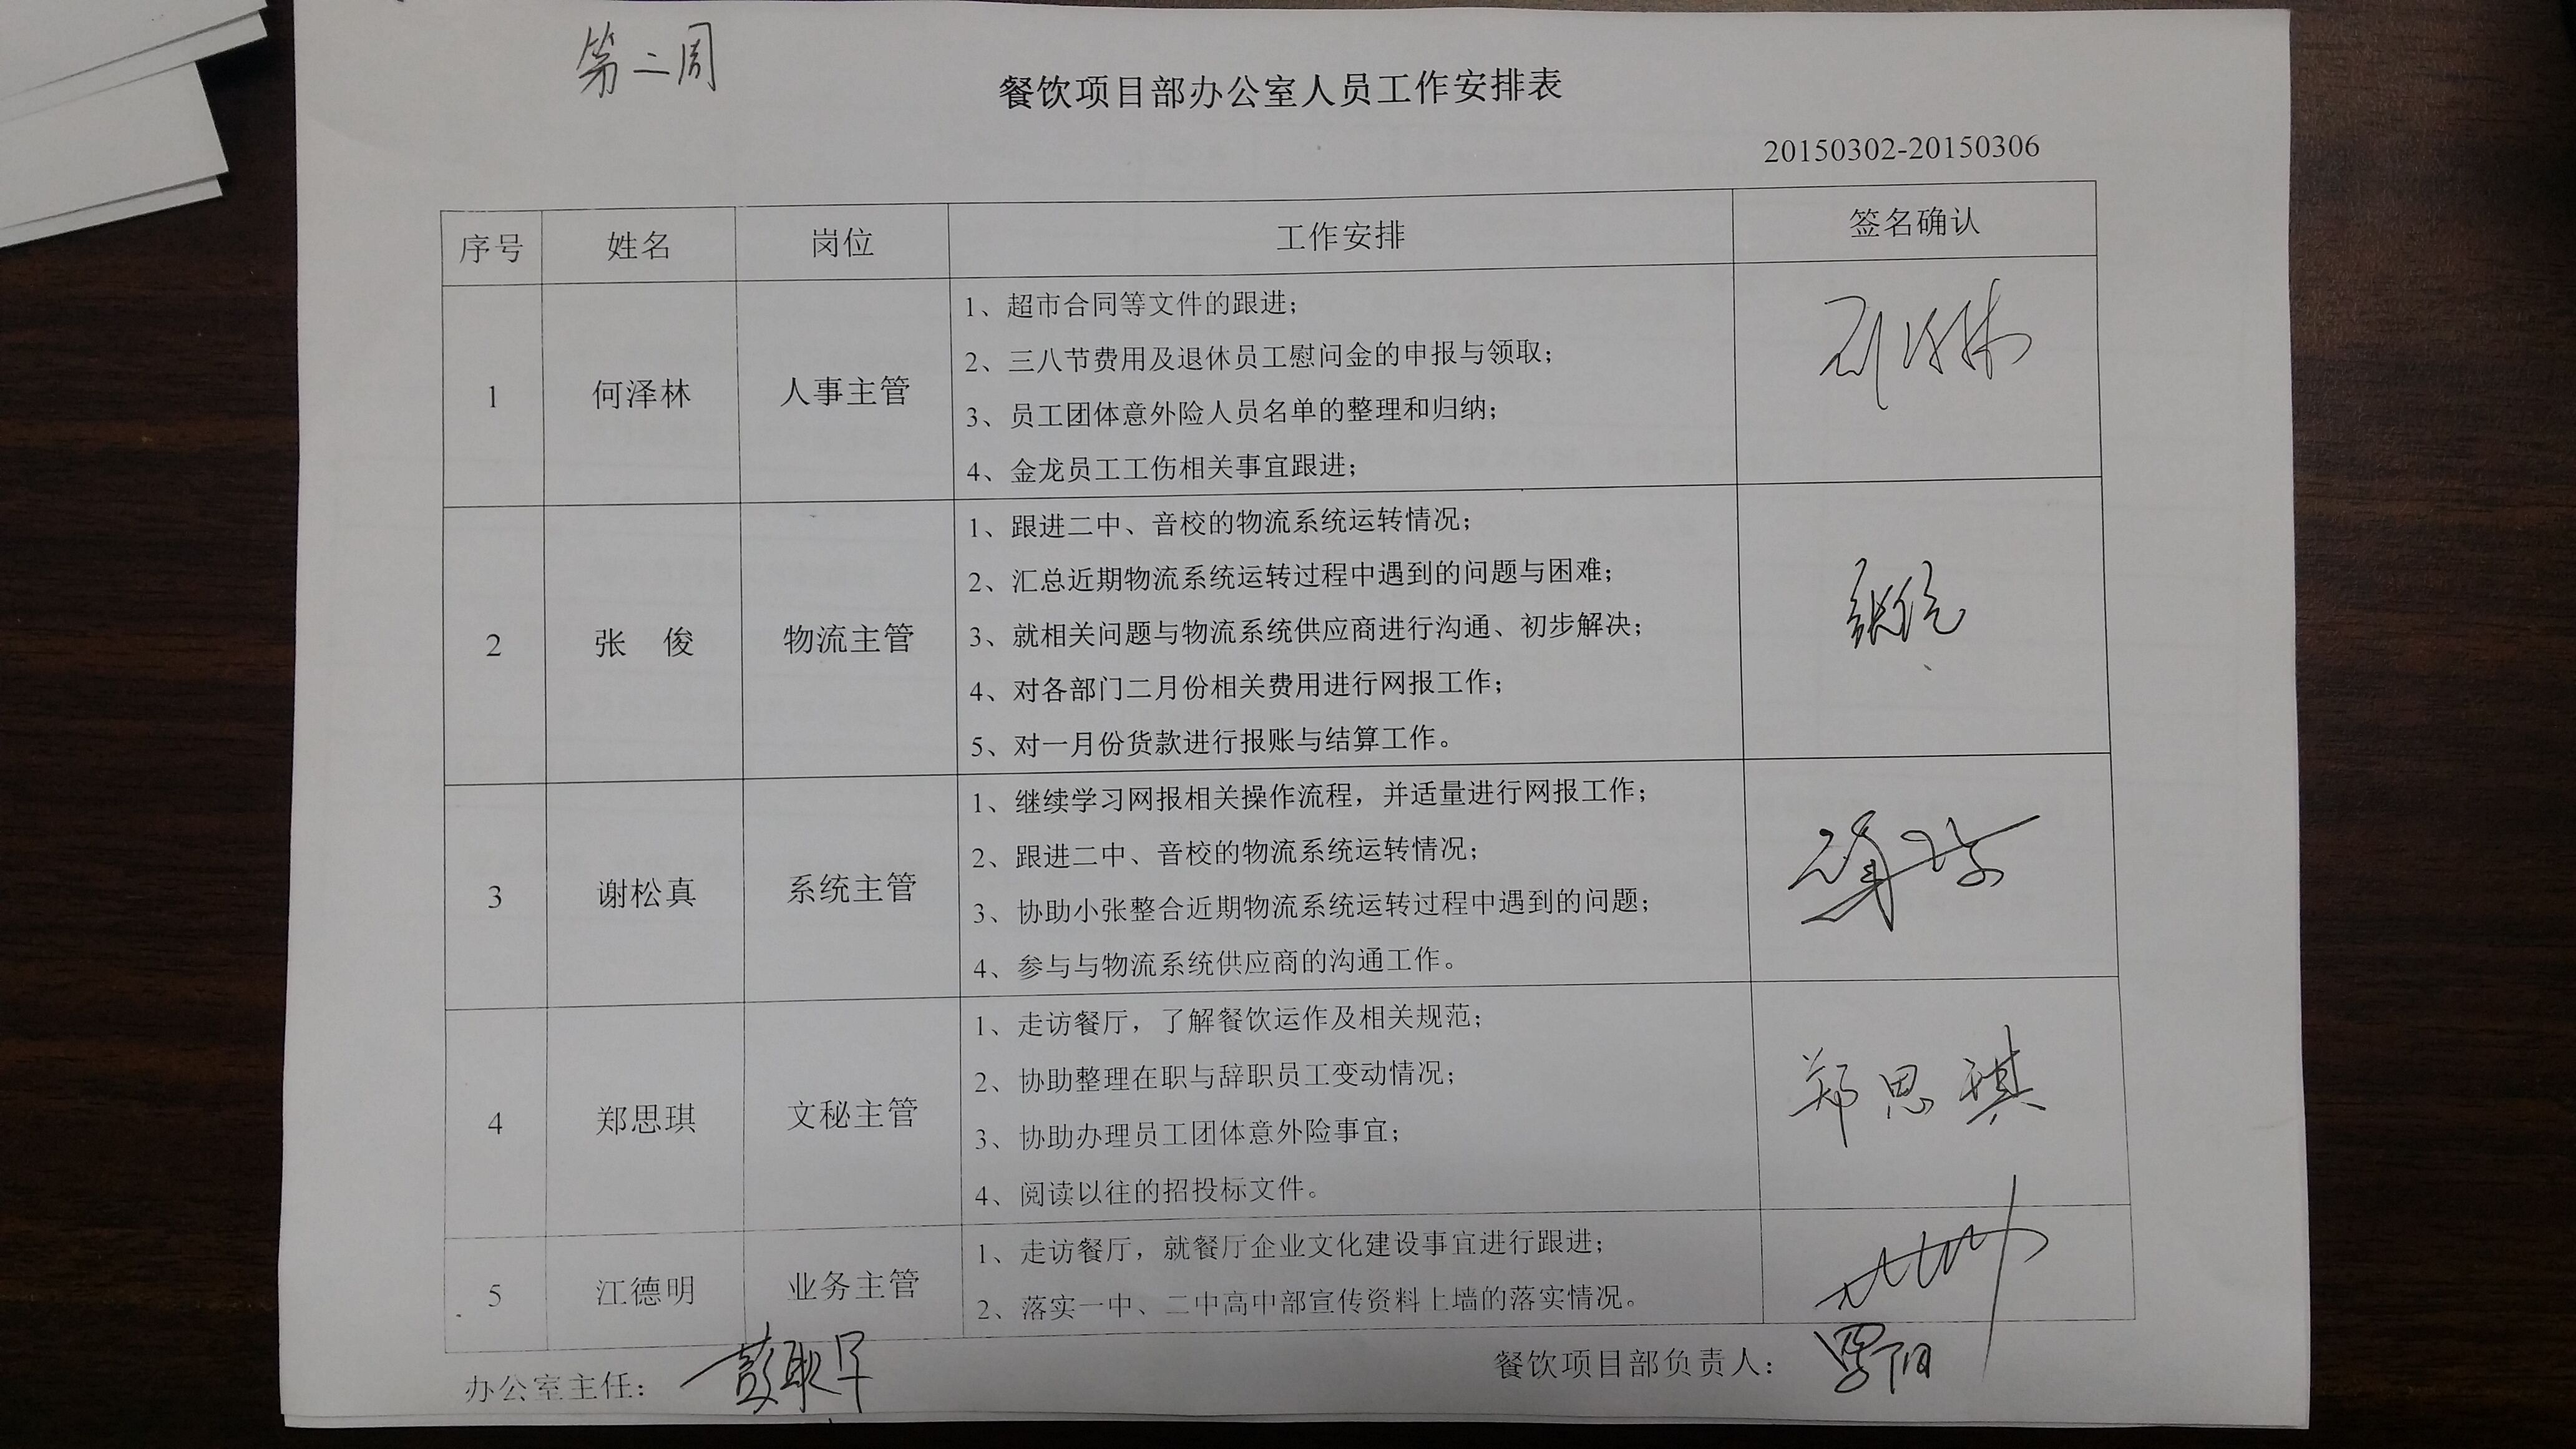 第二周
餐饮项目部办公室人员工作安排表
20150302-20150306
序号 姓名 岗位 工作安排 签名确认
1 何泽林 人事主管
1、超市合同等文件的跟进；
2、三八节费用及退休员工慰问金的申报与领取；
3、员工团体意外险人员名单的整理和归纳；
4、金龙员工工伤相关事宜跟进；
2 张 俊 物流主管
1、跟进二中、音校的物流系统运转情况；
2、汇总近期物流系统运转过程中遇到的问题与困难；
3、就相关问题与物流系统供应商进行沟通、初步解决；
4、对各部门二月份相关费用进行网报工作；
5、对一月份货款进行报账与结算工作。
张俊
3 谢松真 系统主管
1、继续学习网报相关操作流程，并适量进行网报工作；
2、跟进二中、音校的物流系统运转情况；
3、协助小张整合近期物流系统运转过程中遇到的问题；
4、参与与物流系统供应商的沟通工作。
4 郑思琪 文秘主管
1、走访餐厅，了解餐饮运作及相关规范；
2、协助整理在职与辞职员工变动情况；
3、协助办理员工团体意外险事宜；
4、阅读以往的招投标文件。
郑思琪
5 江德明 业务主管
1、走访餐厅，就餐厅企业文化建设事宜进行跟进；
2、落实一中、二中高中部宣传资料上墙的落实情况。
办公室主任： 餐饮项目部负责人： 罗阳